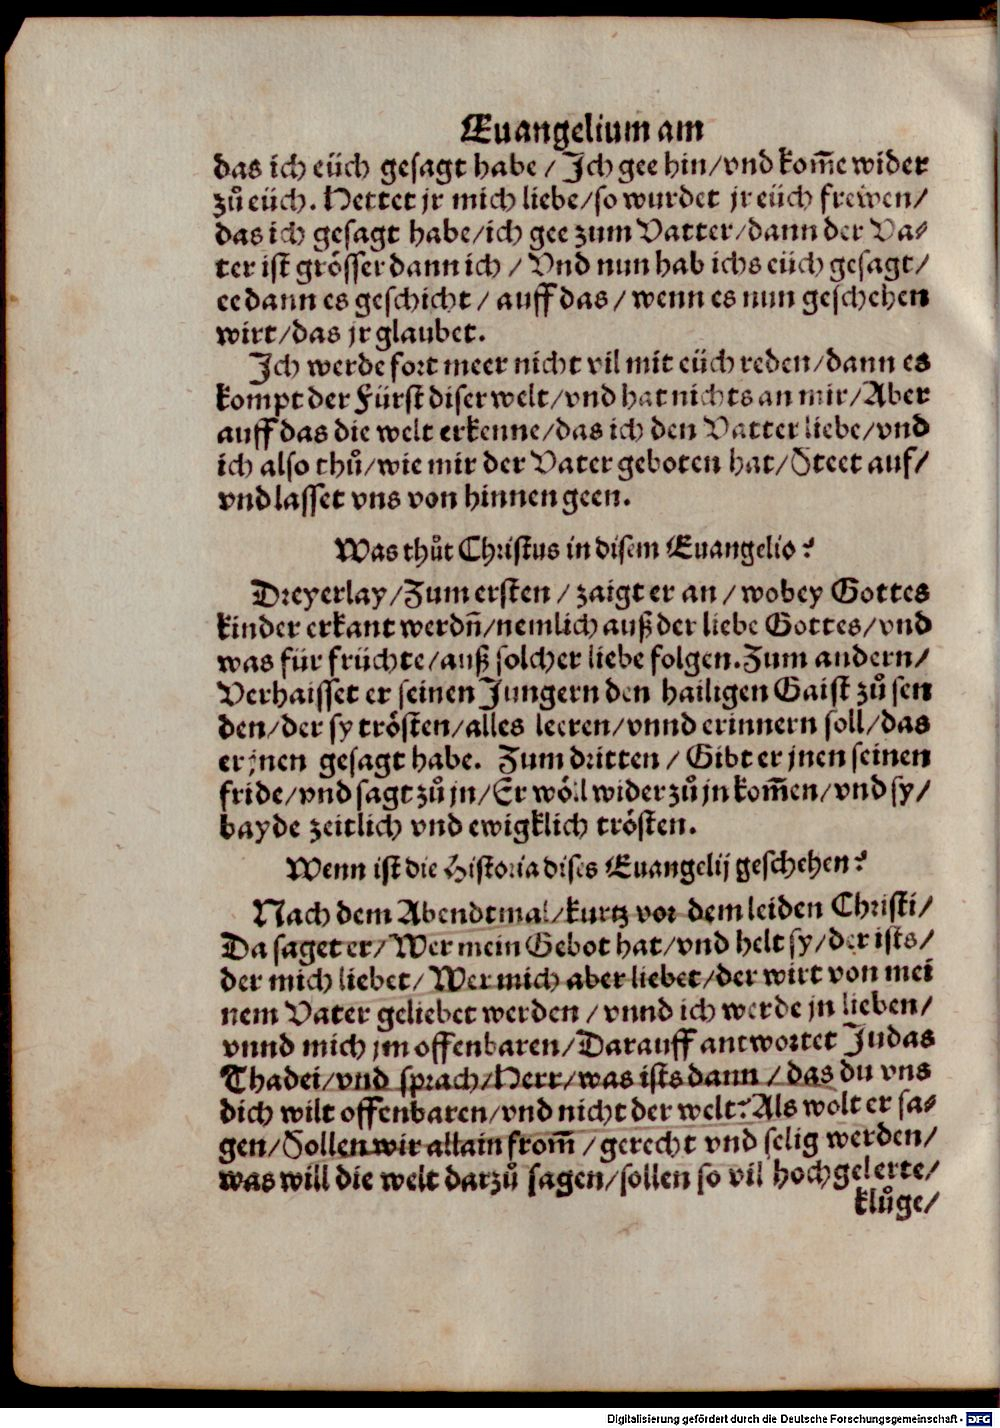 Euangelium am
das ich eüch gesagt habe / Ich gee hin / vnd kom̃e wider
zů eüch. Hettet jr mich liebe / so wurdet jr eüch frewen /
das ich gesagt habe / ich gee zum Vatter / dann der Va⸗
ter ist grösser dann ich / Vnd nun hab ichs eüch gesagt /
ee dann es geschicht / auff das / wenn es nun geschehen
wirt / das jr glaubet.
Ich werde fort meer nicht vil mit eüch reden / dann es
kompt der Fürst diser welt / vnd hat nichts an mir / Aber
auff das die welt erkenne / das ich den Vatter liebe / vnd
ich also thů / wie mir der Vater geboten hat / Steet auf /
vnd lasset vns von hinnen geen.
Was thůt Christus in disem Euangelio?
Dreyerlay / Zum ersten / zaigt er an / wobey Gottes
kinder erkant werdn̄ / nemlich auß der liebe Gottes / vnd
was für früchte / auß solcher liebe folgen. Zum andern /
Verhaisset er seinen Jungern den hailigen Gaist zů sen
den / der sy trösten / alles leeren / vnnd erinnern soll / das
er jnen gesagt habe. Zum dritten / Gibt er jnen seinen
fride / vnd sagt zů jn / Er wöll wider zů jn kom̃en / vnd sy /
bayde zeitlich vnd ewigklich trösten.
Wenn ist die Historia dises Euangelij geschehen?
Nach dem Abendtmal / kurtz vor dem leiden Christi /
Da saget er / Wer mein Gebot hat / vnd helt sy / der ists /
der mich liebet / Wer mich aber liebet / der wirt von mei
nem Vater geliebet werden / vnnd ich werde jn lieben /
vnnd mich jm offenbaren / Darauff antwortet Judas
Thadei / vnd sprach / Herr / was ists dann / das du vns
dich wilt offenbaren / vnd nicht der welt? Als wolt er sa⸗
gen / Sollen wir allain from̃ / gerecht vnd selig werden /
was will die welt darzů sagen / sollen so vil hochgelerte /
klůge /
Digitalisierung gefördert durch die Deutsche Forschungsgemeinschaft - DFG